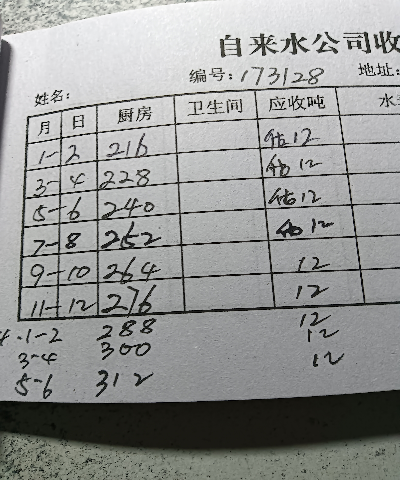 自来水公司收
编号:173128 地址:
姓名:
月 日 厨房 卫生间 应收吨 水
1-2 216 估12
3-4 228 估12
5-6 240 估12
7-8 252 估12
9-10 264 12
11-12 276 12
1-2 288 12
3-4 300 12
5-6 312 12